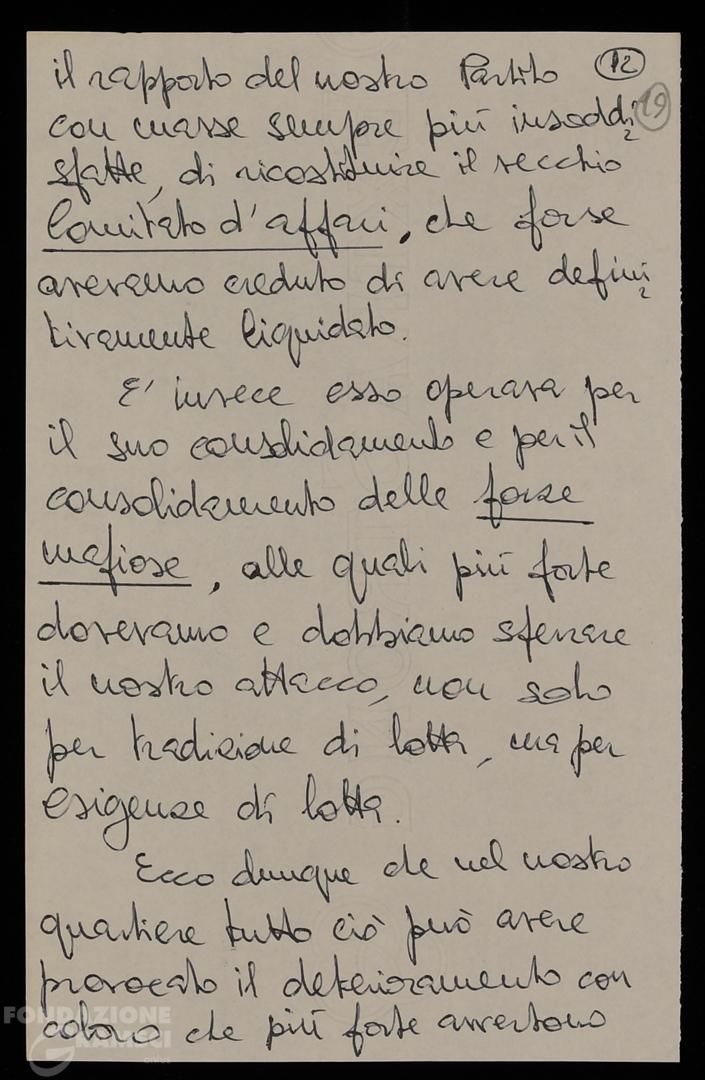 il rapporto del nostro Partito 12
con masse sempre più insoddi 19
sfatte, di ricostituire il vecchio
Comitato d'affari, che forse
avevamo creduto di avere defini
tivamente liquidato.
E' invece esso operava per
il suo consolidamento e per il
consolidamento delle forze
mafiose, alle quali più forte
dovevamo e dobbiamo sferrare
il nostro attacco, non solo
per tradizione di lotta, ma per
esigenze di lotta.
Ecco dunque che nel nostro
quartiere tutto ciò può avere
provocato il deterioramento con
coloro che più forte avvertono
FONDAZIONE
GRAMSCI
onlus